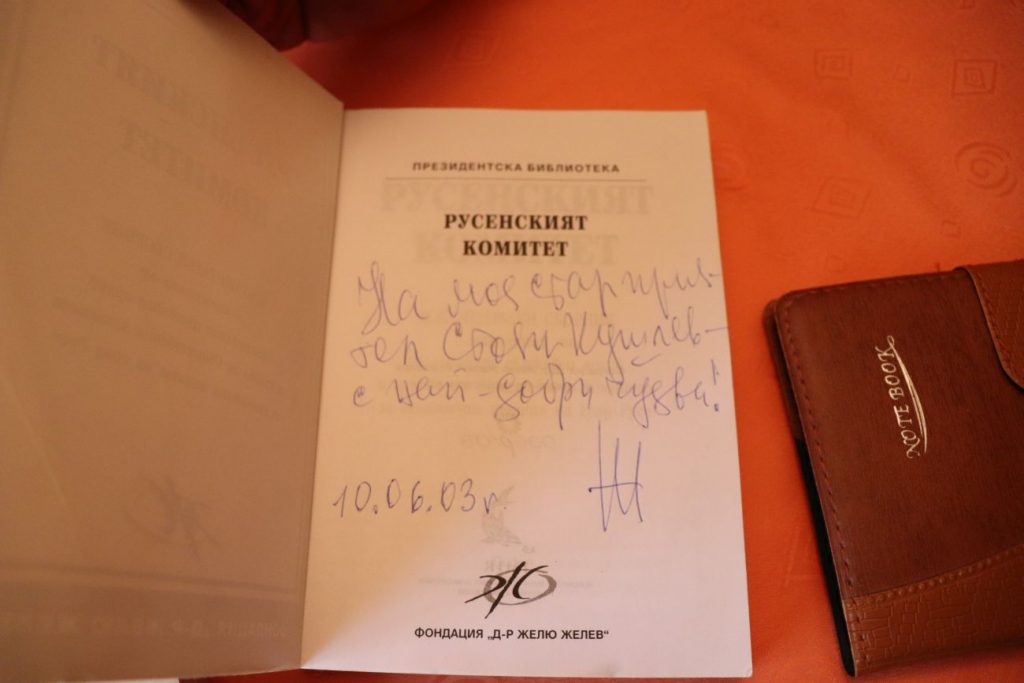 ПРЕЗИДЕНТСКА БИБЛИОТЕКА
РУСЕНСКИЯТ
КОМИТЕТ
На моя стар прия-
тел Стоян Кушлев –
с най-добри чувства!
10.06.03 г.
ФОНДАЦИЯ „Д-Р ЖЕЛЮ ЖЕЛЕВ“
NOTE BOOK